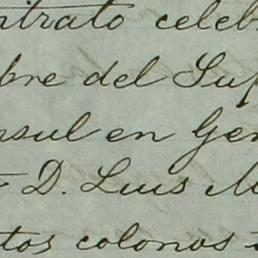 ntrato celeb
bre del Sup
nsul en Gen
D. Luis M
tos colonos